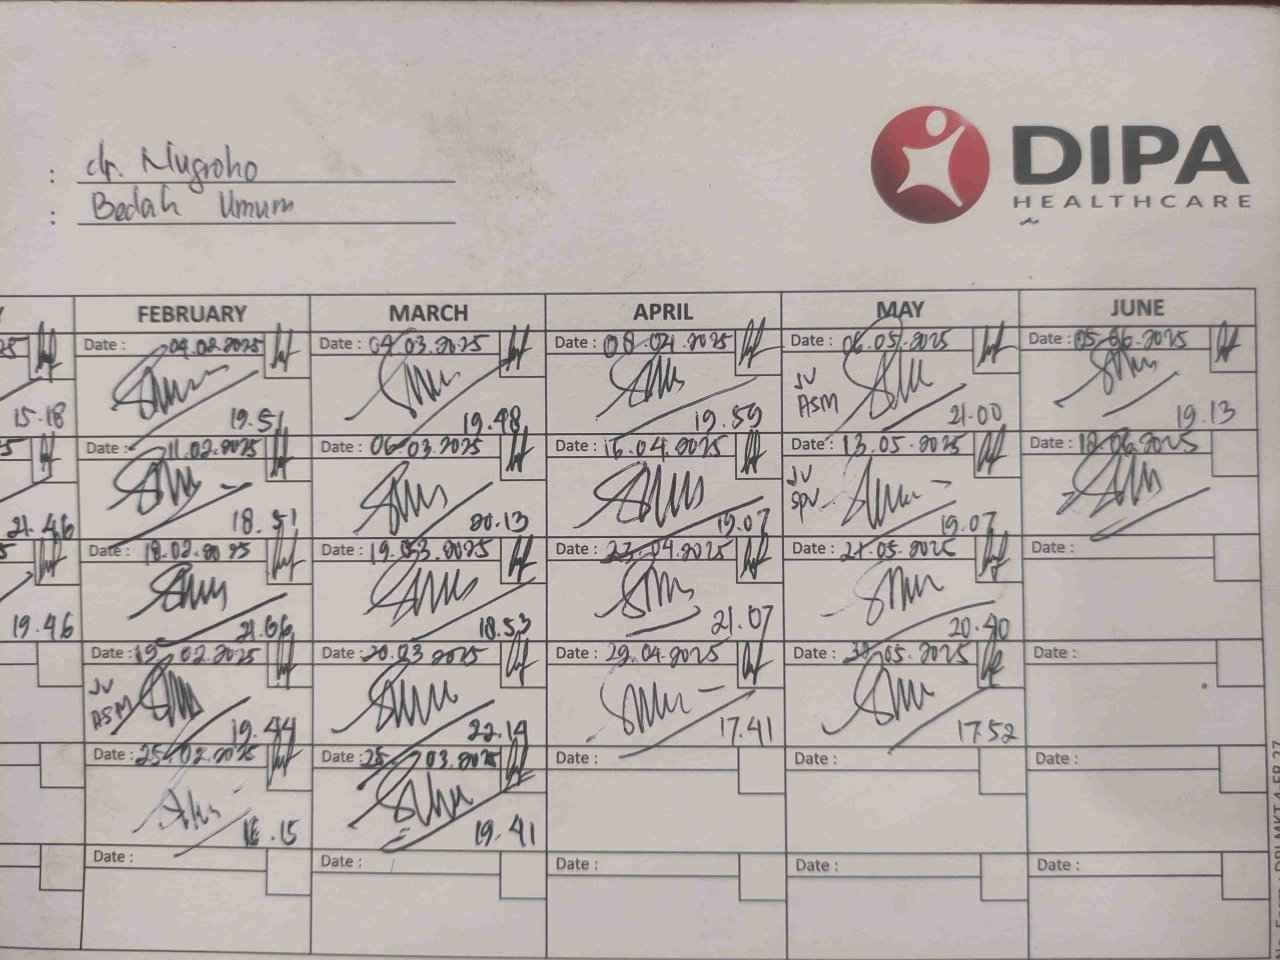 : dr. Nugroho
: Bedah Umum
DIPA
HEALTHCARE
FEBRUARY MARCH APRIL MAY JUNE
Date : 04.02.2025 Date : 04.03.2025 Date : 08.04.2025 Date : 06.05.2025 Date : 05.06.2025
JV
ASM
15.18 19.51 19.48 19.59 21.00 19.13
Date : 11.02.2025 Date : 06.03.2025 Date : 16.04.2025 Date : 13.05.2025 Date : 18.06.2025
JV
SPV
21.46 18.51 20.13 19.07 19.07
Date : 18.02.2025 Date : 19.03.2025 Date : 23.04.2025 Date : 21.05.2025 Date :
19.46 21.06 18.53 21.07 20.40
Date : 19.02.2025 Date : 20.03.2025 Date : 29.04.2025 Date : 05.2025 Date :
JV
ASM
19.44 22.14 17.41 17.52
Date : 25.02.2025 Date : 25.03.2025 Date : Date : Date :
16.15 19.41
Date : Date : Date : Date : Date :